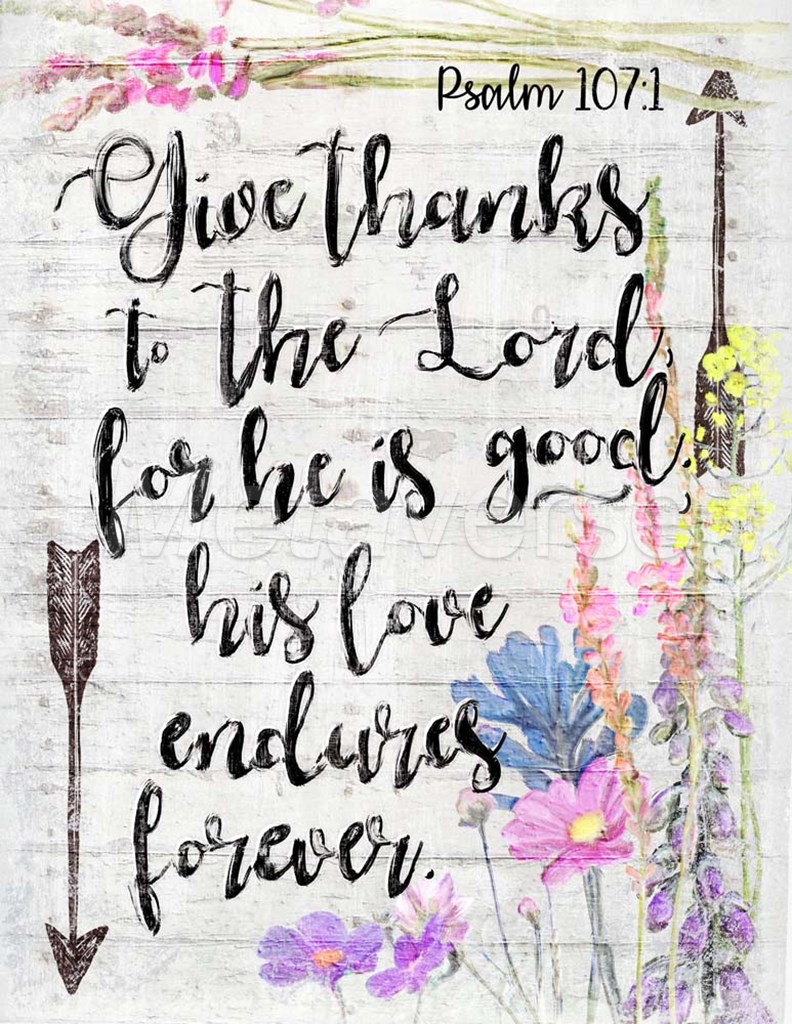 Psalm 107:1
Give thanks
to the Lord,
for he is good;
his love
endures
forever.
Metaverse